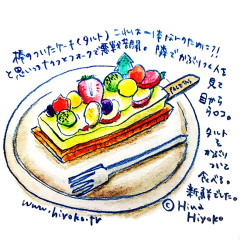 棒のついたケーキ(タルト)これは一体なんのために?!
と思いつつナイフとフォークで悪戦苦闘。隣でかぶりつく人を
見て
目から
ウロコ。
タルトを
かぶり
ついて
食べる。
新鮮でした。
©Hina
Hiroko
www.hiroko.tv